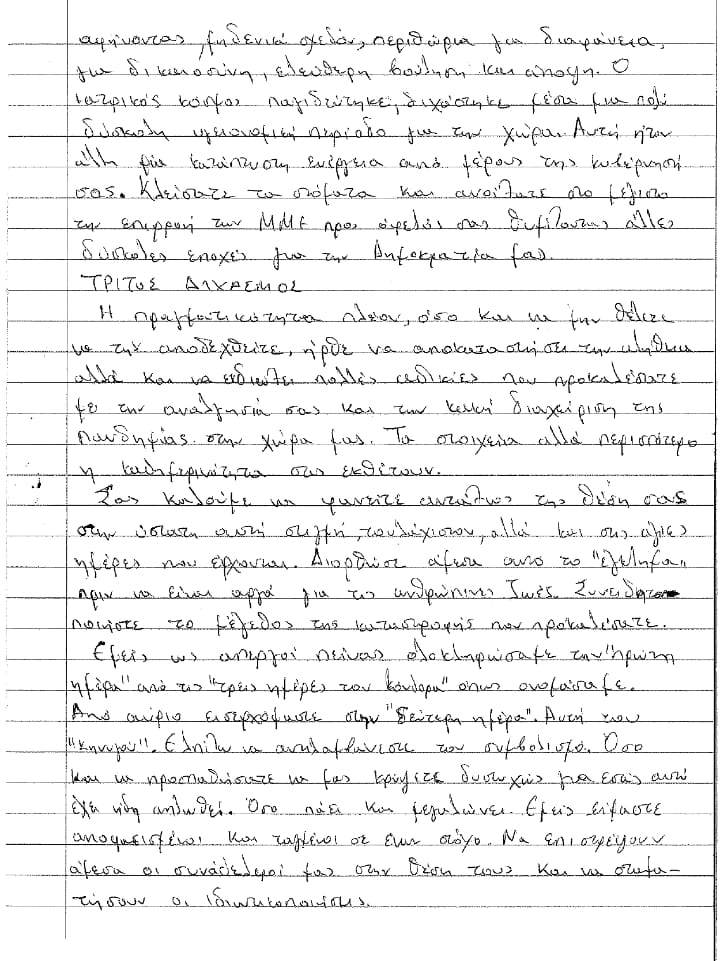 αφήνοντας μηδενικά σχεδόν, περιθώρια για διαφάνεια,
για δικαιοσύνη, ελεύθερη βούληση και άποψη. Ο
ιατρικός κόσμος παγιδεύτηκε, διχάστηκε μέσα μια πολύ
δύσκολη υγειονομική περίοδο για την χώρα. Αυτή ήταν
άλλη μία κατάπτυστη ενέργεια από μέρους της κυβέρνησή
σας. Κλείσατε τα στόματα και ανοίξατε στο μέγιστο
την επιρροή των ΜΜΕ προς όφελός σας θυμίζοντας άλλες
δύσκολες εποχές για την Δημοκρατία μας.
ΤΡΙΤΟΣ ΔΙΧΑΣΜΟΣ
Η πραγματικότητα πλέον, όσο και να μην θέλετε
να την αποδεχθείτε, ήρθε να αποκαταστήσει την αλήθεια
αλλά και να εκδικηθεί πολλές αδικίες που προκαλέσατε
με την αναλγησία σας και την κακή διαχείριση της
πανδημίας στην χώρα μας. Τα στοιχεία αλλά περισσότερο
η καθημερινότητα σας εκθέτουν.
Σας καλούμε να φανείτε αντάξιος της θέση σας
στην ύστατη αυτή στιγμή, τουλάχιστον, αλλά και στις άγιες
ημέρες που έρχονται. Διορθώσε άμεσα αυτό το "έγκλημα"
πριν να είναι αργά για τις ανθρώπινες ζωές. Συνειδητο-
ποιήστε το μέγεθος της καταστροφής που προκαλέσατε.
Εμείς ως απεργοί πείνας ολοκληρώσαμε την "πρώτη
ημέρα" από τις "τρεις ημέρες του κόνδορα" όπως ονομάσαμε.
Από αύριο εισερχόμαστε στην "δεύτερη ημέρα". Αυτή του
"κυνηγού". Ελπίζω να αντιλαμβάνεστε τον συμβολισμό. Όσο
και να προσπαθήσατε να μας κρύψετε δυστυχώς για εσάς αυτό
έχει ήδη απλωθεί. Όσο πάει και μεγαλώνει. Εμείς είμαστε
αποφασισμένοι και ταγμένοι σε έναν στόχο. Να επιστρέψουν
άμεσα οι συνάδελφοί μας στην θέση τους και να σταμα-
τήσουν οι ιδιωτικοποιήσεις.